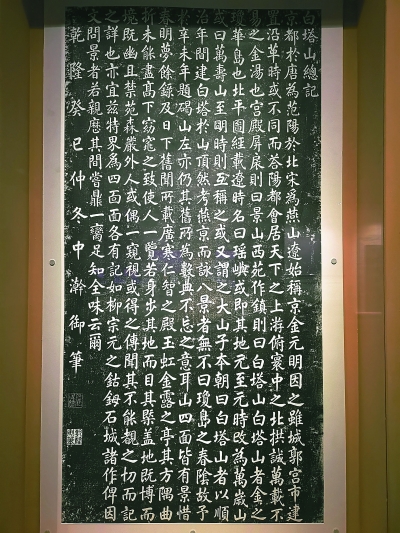 白塔山總記
京都於唐為范陽於北宋為燕山遼始稱京金元明因之雖城郭宮市建
置沿革時或不同而荅陽都會居天下之上游俯寰中之北拱誠萬載不
易之金湯也宮殿屏扆則曰景山西苑作鎮則曰白塔山白塔山者金之
瓊華島也北平圖經載遼時名曰瑤嶼或即其地元至元時改為萬歲山
或曰萬壽山至明時則互稱之或又謂之大山子本朝曰白塔山者以順
治年間建白塔於山頂然考燕京而詠八景者無不曰瓊島之春陰故予
於辛未年題碣山左亦仍其舊所為數典不忘之意耳山四面皆有景惜
春明夢餘錄及日下舊聞所載廣寒仁智之殿玉虹金露之亭其方隅曲
折未能盡高下窈窕之致使人一覽若身步其地而目其槩盖地既博而
境既幽且禁苑森嚴外人或偶一窺視或得之傳聞其不能覩之切而記
之詳也亦宜茲特界為四面面各有記如柳宗元之鈷鉧石城諸作俾因
文問景者若親歷其間嘗鼎一臠足知全味云爾
乾隆癸巳仲冬中澣御筆